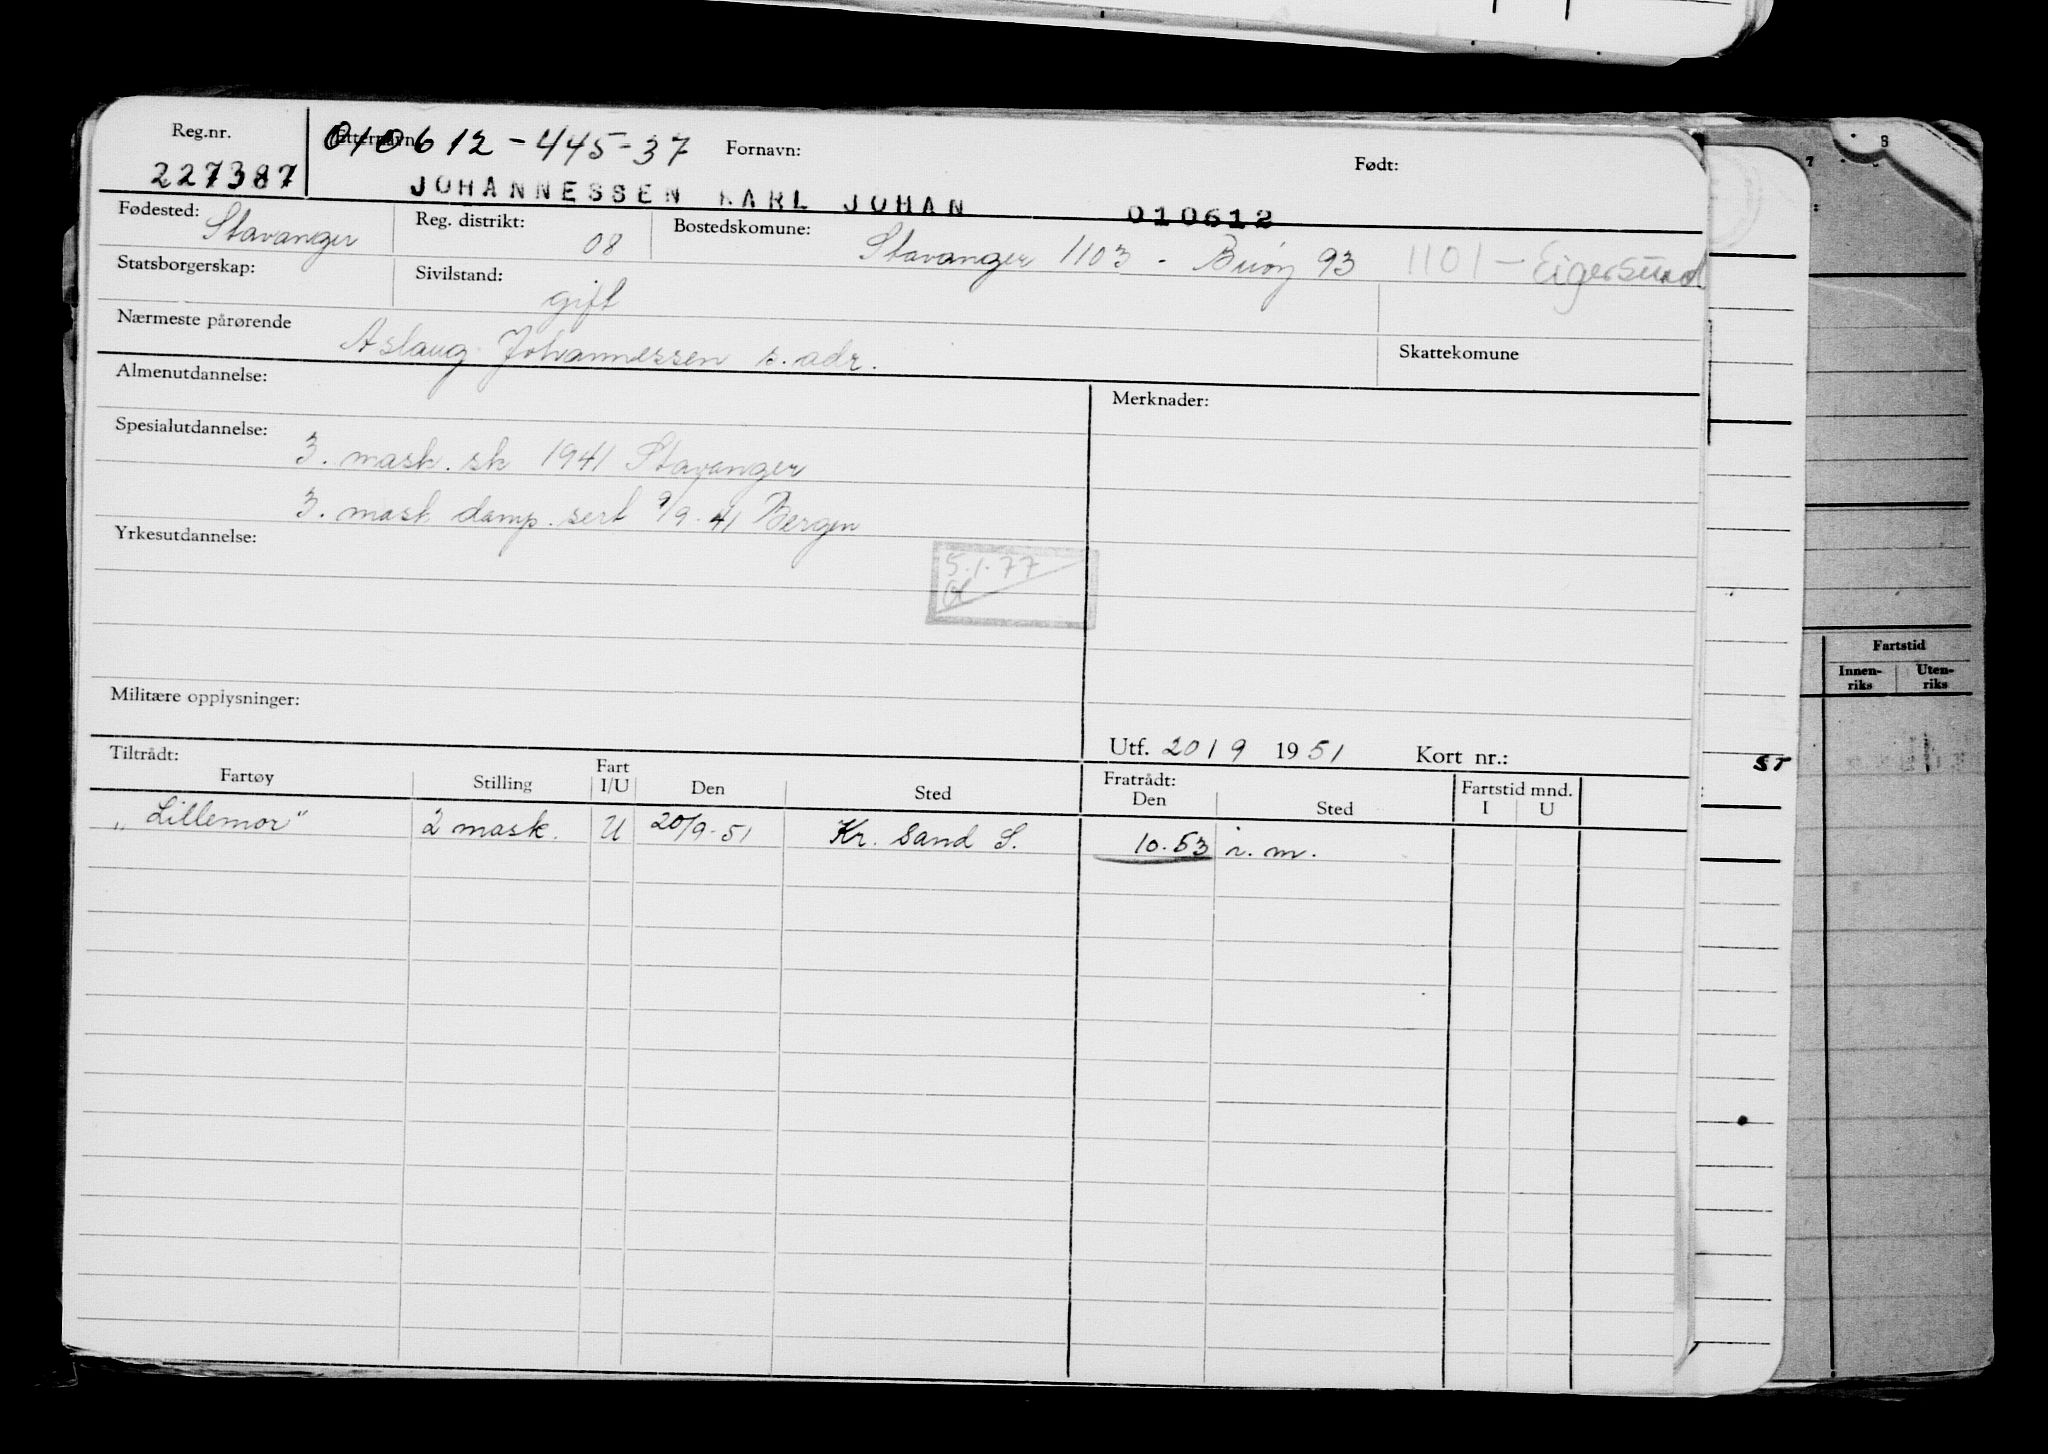 Reg.nr. Etternavn: 010612-445-37 Fornavn: Født:
227387 JOHANNESSEN KARL JOHAN 010612
Fødested: Stavanger Reg. distrikt: 08 Bostedskomune: Stavanger 1103 - Buøy 93 1101 - Eigersund
Statsborgerskap: Sivilstand: gift
Nærmeste pårørende Aslaug Johannessen s. adr. Skattekomune
Almenutdannelse: Merknader:
Spesialutdannelse: 3. mask. sk 1941 Stavanger
3. mask damp. sert 9/9-41 Bergen
Yrkesutdannelse:
5.1.77
Militære opplysninger:
Utf. 20/9 1951 Kort nr.:
Tiltrådt: Fratrådt: Fartstid mnd.
Fartøy Stilling Fart I/U Den Sted Den Sted I U
"Lillemor" 2 mask. U 20/9-51 Kr. Sand S. 10.53 i.m.
Fartstid
Innen-riks Uten-riks
ST